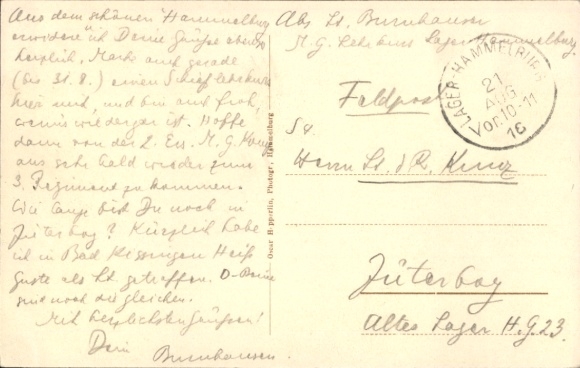 Aus dem schönen Hammelburg
erwidere ich Deine Grüße ebenso
herzlich. Mache auch gerade
(bis 31.8.) einen Schießlehrkurs
hier mit, und bin auch froh,
wenns wieder gar ist. Hoffe
dann von der 2. Ers. M.G. Komp.
aus sehr bald wieder zum
3. Regiment zu kommen.
Wie lange bist Du noch in
Jüterbog? Kürzlich habe
ich in Bad Kissingen Heiß
Guste als Lt. getroffen. O-Beine
sind noch die gleichen.
Mit herzlichsten Grüßen!
Dein
Burnhauser.
Oscar Hopperlin, Photogr., Hammelburg
Abs. Lt. Burnhauser
M.G. Lehrkurs Lager Hammelburg
LAGER-HAMMELBURG
21
AUG
Vor. 10-11
16
Feldpost
Herrn Lt. d. R. Kunz
Jüterbog
Altes Lager H.G. 23.